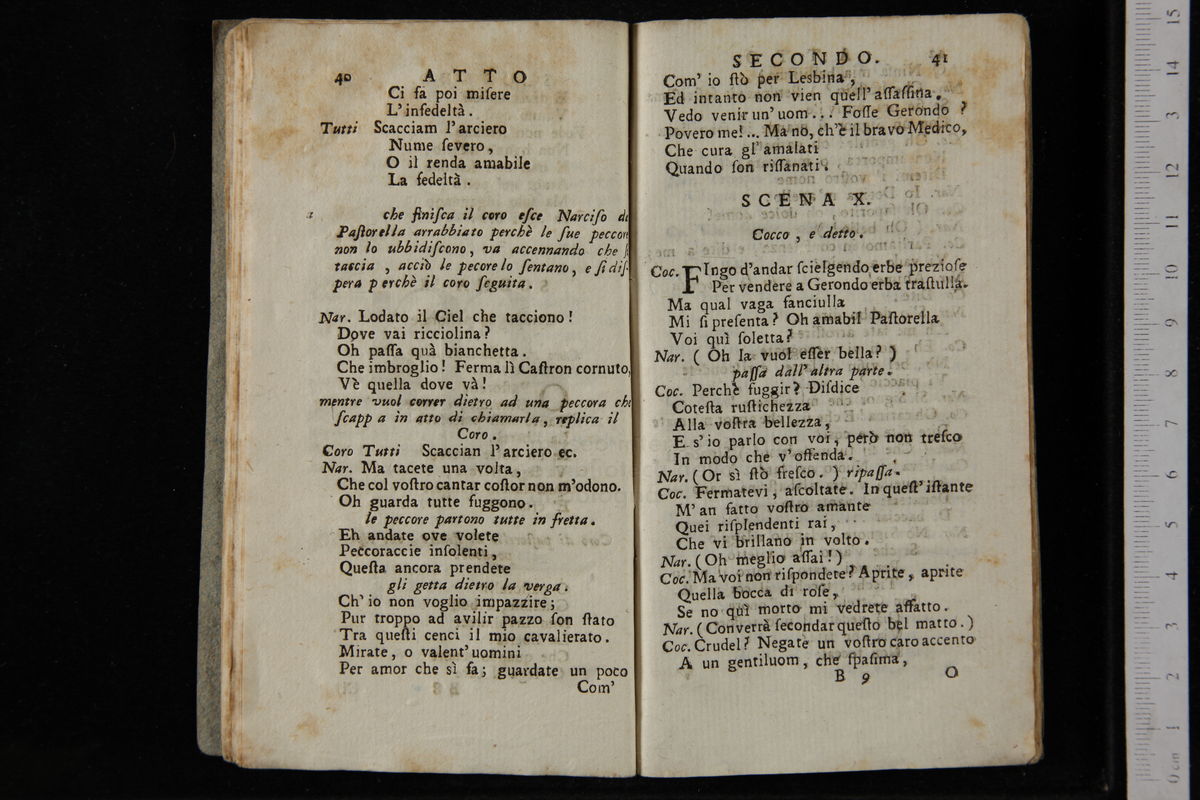 40 ATTO
Ci fa poi miſere
L'infedeltà.
Tutti Scacciam l'arciero
Nume ſevero,
O il renda amabile
La fedeltà.
che finiſca il coro eſce Narciſo da
Paſtorella arrabbiato perchè le ſue peccore
non lo ubbidiſcono, va accennando che
taccia, acciò le pecore lo ſentano, e ſi diſ-
pera perchè il coro ſeguita.
Nar. Lodato il Ciel che tacciono!
Dove vai ricciolina?
Oh paſſa quà bianchetta.
Che imbroglio! Ferma lì Caſtron cornuto,
Vè quella dove và!
mentre vuol correr dietro ad una peccora che
ſcappa in atto di chiamarla, replica il
Coro.
Coro Tutti Scaccian l'arciero ec.
Nar. Ma tacete una volta,
Che col voſtro cantar coſtor non m'odono.
Oh guarda tutte fuggono.
le peccore partono tutte in fretta.
Eh andate ove volete
Peccoraccie inſolenti,
Queſta ancora prendete
gli getta dietro la verga.
Ch'io non voglio impazzire;
Pur troppo ad avilir pazzo ſon ſtato
Tra queſti cenci il mio cavalierato.
Mirate, o valent'uomini
Per amor che sì fa; guardate un poco
Com'
SECONDO. 41
Com' io ſtò per Lesbina,
Ed intanto non vien quell'aſſaſſina.
Vedo venir un'uom... Foſſe Gerondo?
Povero me!... Ma nò, ch'è il bravo Medico,
Che cura gl'amalati
Quando ſon riſſanati.
SCENA X.
Cocco, e detto.
Coc. FIngo d'andar ſcielgendo erbe prezioſe
Per vendere a Gerondo erba traſtulla.
Ma qual vaga fanciulla
Mi ſi preſenta? Oh amabil Paſtorella
Voi quì ſoletta?
Nar. (Oh la vuol eſſer bella?)
paſſa dall'altra parte.
Coc. Perchè fuggir? Diſdice
Coteſta ruſtichezza
Alla voſtra bellezza,
E s'io parlo con voi, però non treſco
In modo che v'offenda.
Nar. (Or sì ſtò freſco.) ripaſſa.
Coc. Fermatevi, aſcoltate. In queſt'iſtante
M'an fatto voſtro amante
Quei riſplendenti rai,
Che vi brillano in volto.
Nar. (Oh meglio aſſai!)
Coc. Ma voi non riſpondete? Aprite, aprite
Quella bocca di roſe,
Se no quì morto mi vedrete affatto.
Nar. (Converrà ſecondar queſto bel matto.)
Coc. Crudel? Negate un voſtro caro accento
A un gentiluom, che ſpaſima,
B 9 O
0 cm 1 2 3 4 5 6 7 8 9 10 11 12 13 14 15